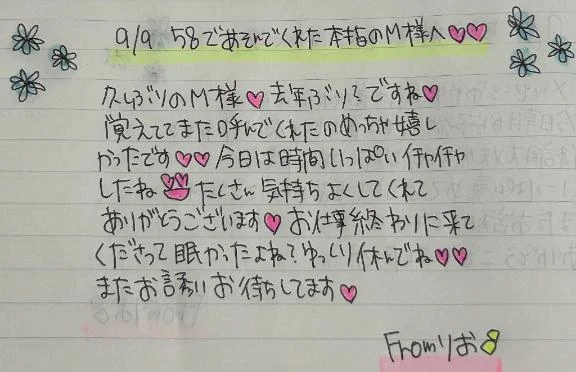 9/9 58であそんでくれた本指のM様へ♡♡
久しぶりのM様♡去年ぶり?ですね♡
覚えててまた呼んでくれたのめっちゃ嬉し
かったです♡♡今日は時間いっぱいイチャイチャ
したね たくさん気持ちよくしてくれて
ありがとうございます♡お仕事終わりに来て
くださって眠かったよね?ゆっくり休んでね♡♡
またお誘いお待ちしてます♡
Fromりお